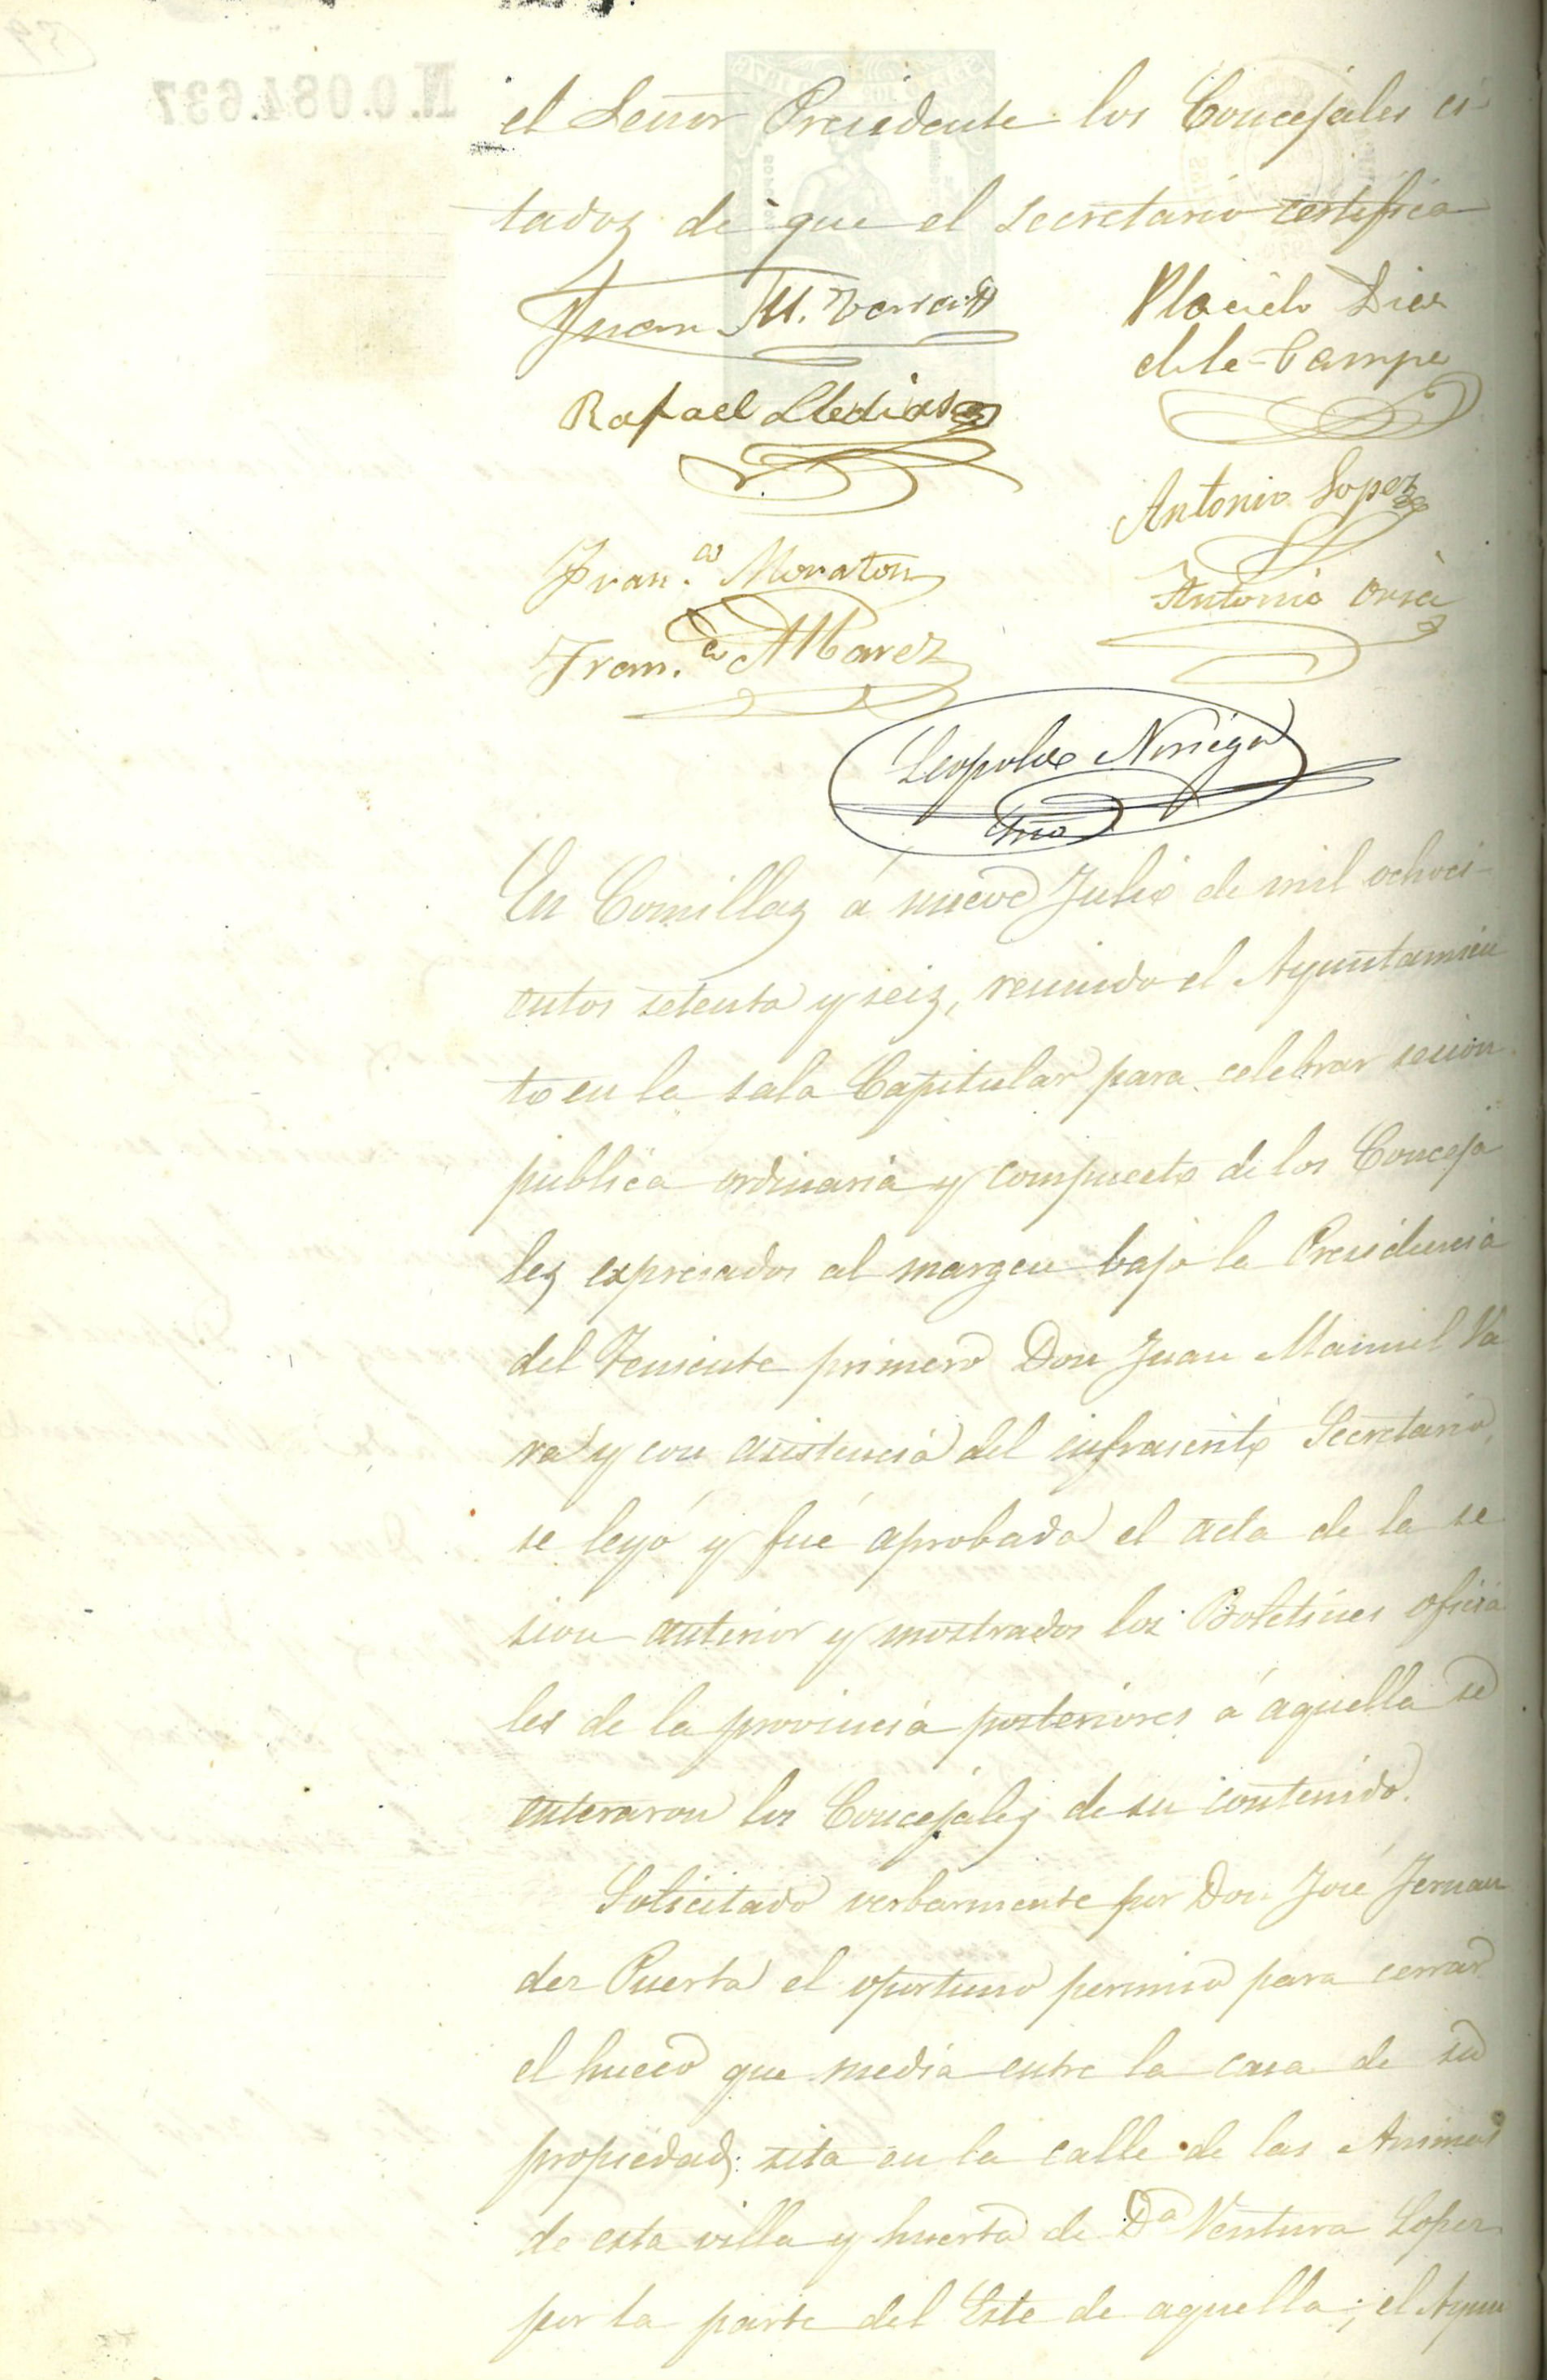 N.0.084.637
el Señor Presidente los Concejales ci-
tados de que el secretario certifica
Juan M.
Placido Diaz
de la Campa
Rafael
Antonio Lopez
Fran.co Moraton
Antonio Oria
Fran.co Alvarez
Leopoldo Noriega
Srio
En Comillas á nueve Julio de mil ochoci-
entos setenta y seis, reunido el Ayuntamien
to en la sala Capitular para celebrar sesion
publica ordinaria y compuesto de los Conceja
les expresados al margen bajo la Presidencia
del Teniente primero Don Juan Manuel Va
ra y con asistencia del infrascrito Secretario,
se leyó y fué aprobada el acta de la se
sion anterior y mostrados los Boletines oficia
les de la provincia posteriores á aquella se
enteraron los Concejales de su contenido.
Solicitado verbarmente por Don José Fernan
dez Puerta el oportuno permiso para cerrar
el hueco que media entre la casa de su
propiedad, sita en la calle de las Animas
de esta villa y huerta de Dª Ventura Lopez
por la parte del Este de aquella; el Ayun